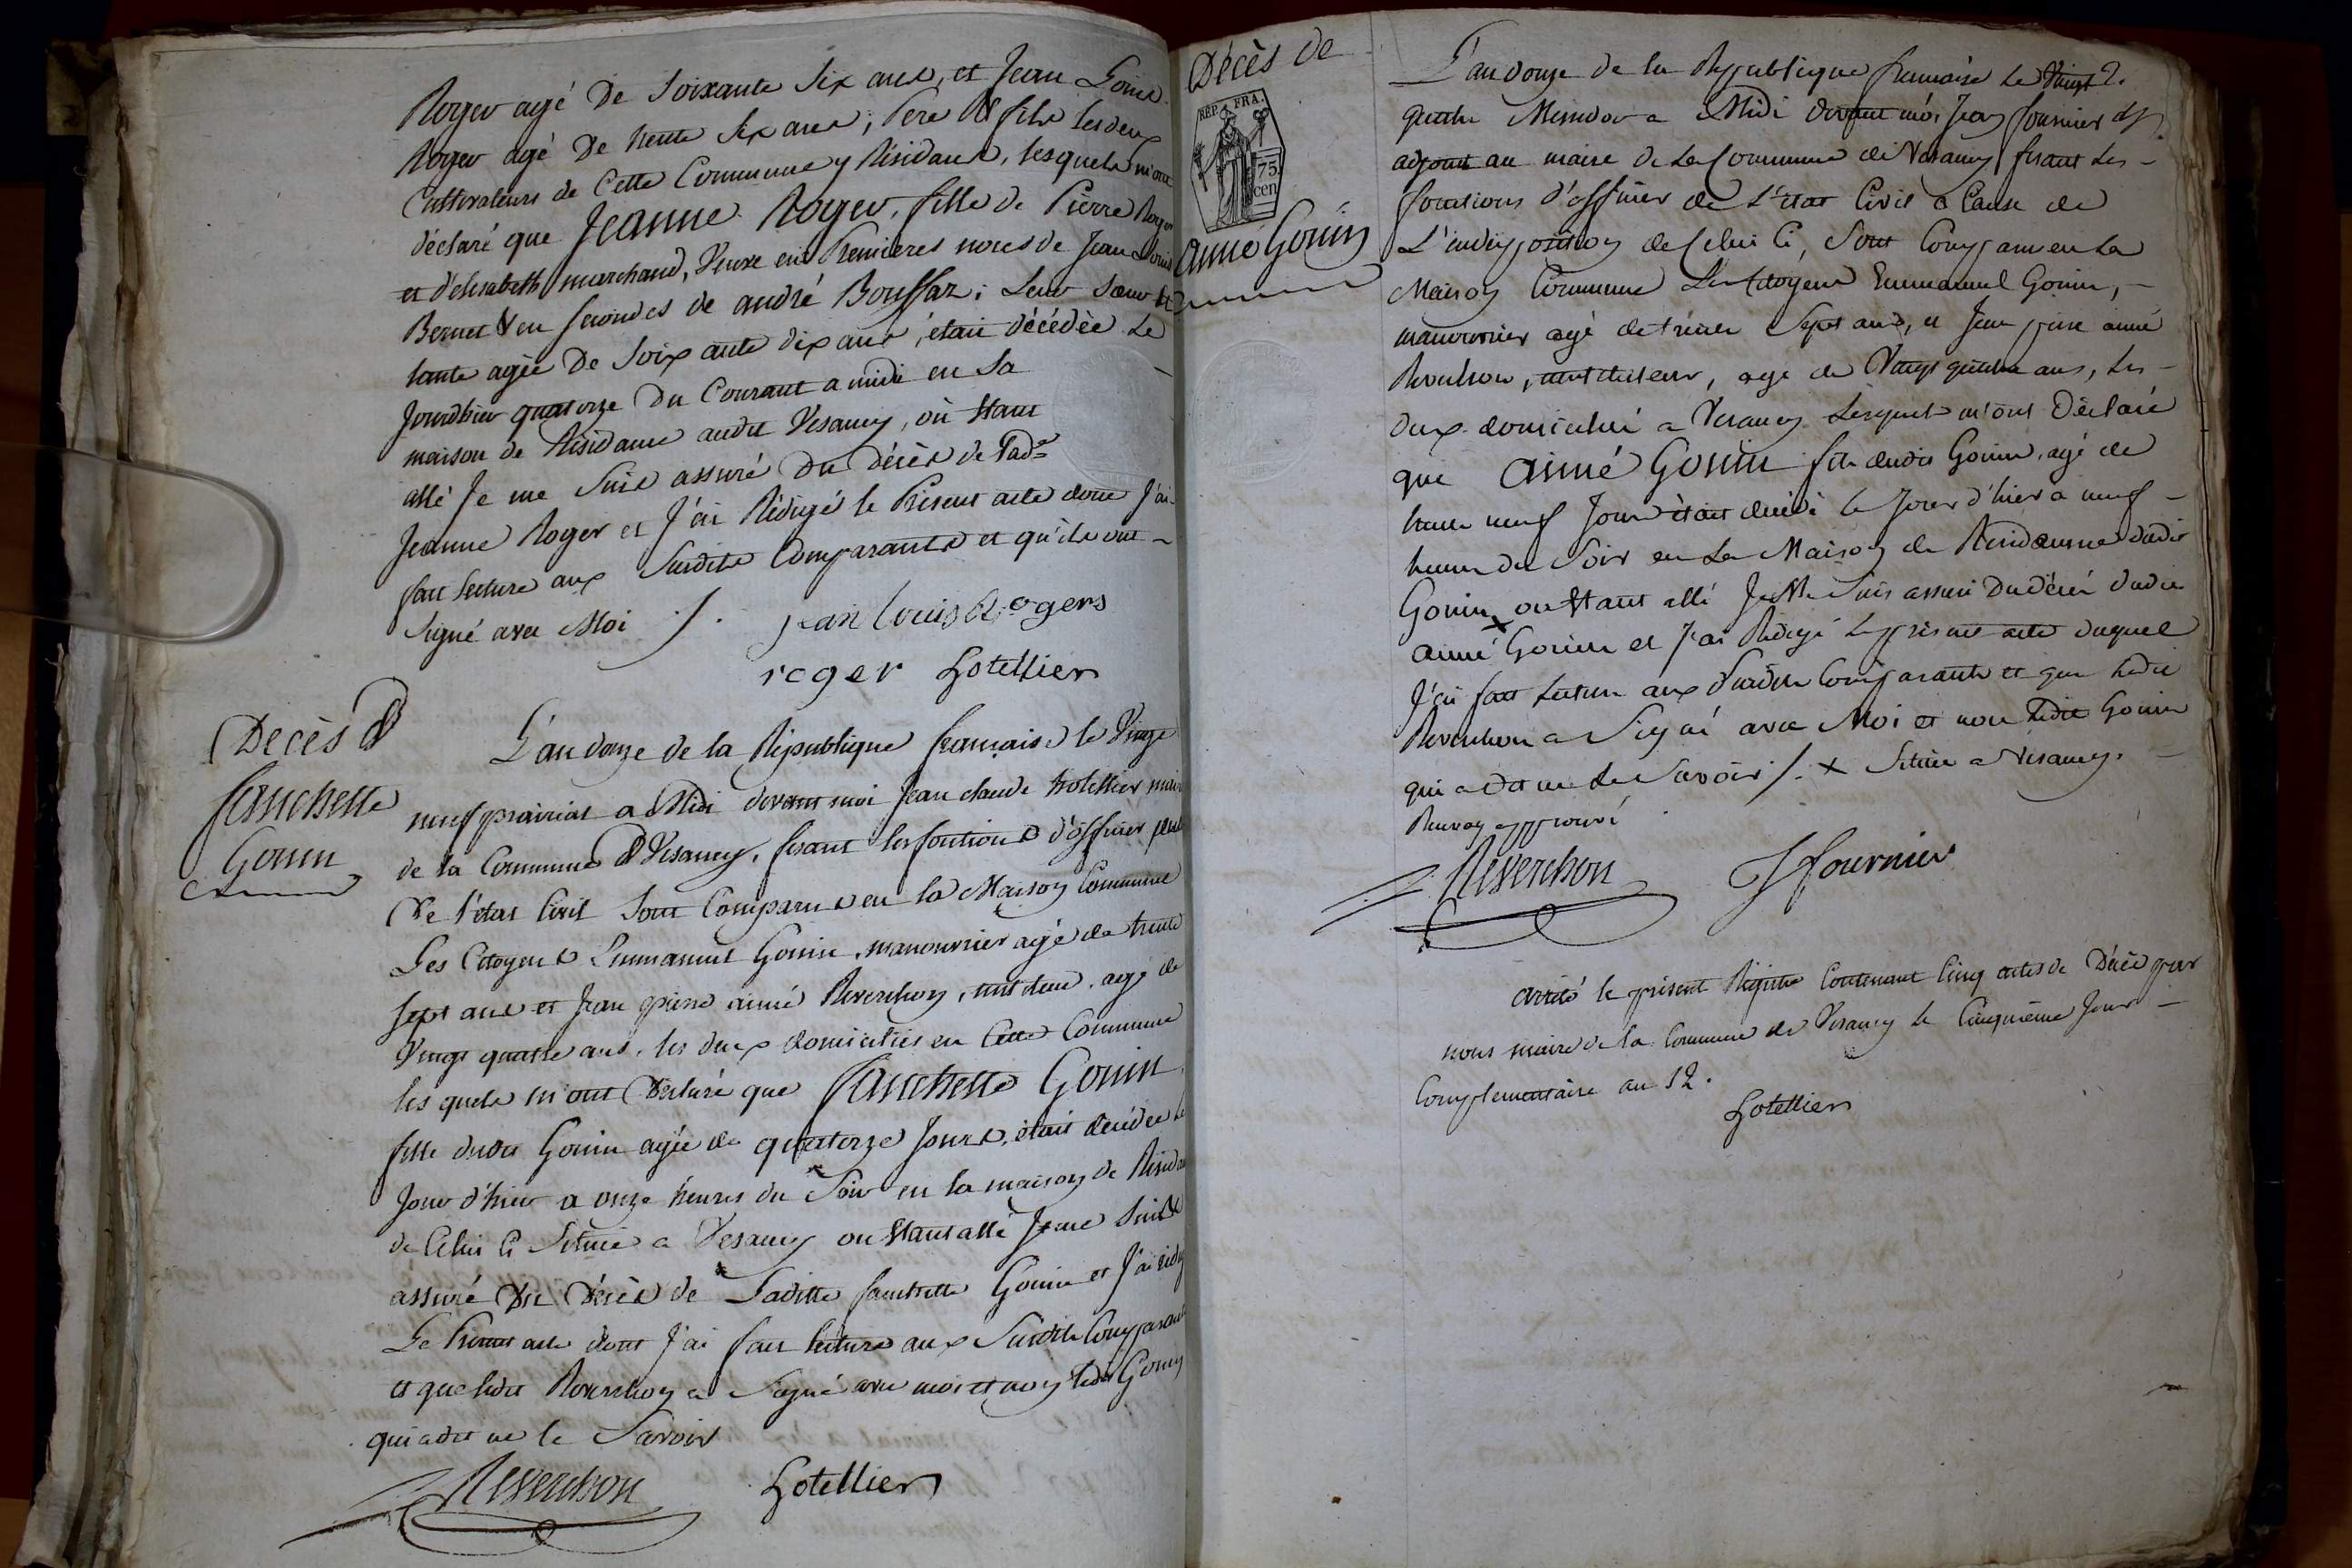 Roger agé de Soixante Six ans, et Jean Louis
Roger agé de trente Six ans; Pere & fils les deux
Cultivateurs de Cette Commune y Résidans, lesquels m'ont
déclaré que Jeanne Roger, fille de Pierre Roger
et d'elisabeth marchand, Veuve en Premieres noces de Jean Louis
Bernet & en secondes de andré Bouffaz; Leur Sœur &
tante agée De Soixante dix ans, était décédée Le
Jourdhier quatorze Du Courant a midi en Sa
maison de Résidance audit Vesancy, où Etant
allé Je me Suis assuré Du décès de Lad.e
Jeanne Roger et J'ai Rédigé le Présent acte dont J'ai
fait lecture aux Susdits Comparants et qu'ils ont
Signé avec Moi /.
jean louis Rogers
roger Lotellier
Décès de
fanchette
Gonin
L'an douze de la République française le Vingt
neuf prairial a Midi devant moi Jean claude Hotellier maire
de la Commune de Vesancy, fesant les fontions d'officier public
De l'état Civil Sont Comparus en la Maison Commune
Les Citoyens Emmanuel Gonin, manouvrier agé de trente
sept ans et Jean pierre aimé Reverchon, instituteur, agé de
Vingt quatre ans, les deux domiciliés en Cette Commune
les quels m'ont Déclaré que fanchette Gonin
fille dudit Gonin agée de quatorze Jours, était décédée le
Jour d'hier a onze heures du Soir en la maison de Résidance
de Celui Ci Située a Vesancy ou Etant allé Je me Suis
assuré Du Décès de Laditte fanchette Gonin et J'ai rédigé
Le Présent acte dont J'ai fait lecture aux Susdits Comparants
et que ledit Reverchon a Signé avec moi et non ledit Gonin
qui a dit ne le Savoir
Reverchon Lotellier
Décès de
RÉP. FRA.
75
cen
aimé Gonin
L'an douze de la République française Le Vingt
quatre Messidor a Midi devant moi Jean fournier
adjoint au maire de La Commune de Vesancy fesant Les
fonctions d'officier de L'état Civil a Cause de
L'indisposition de Celui Ci, Sont Comparus en La
Maison Commune Les Citoyens Emmanuel Gonin,
manouvrier agé de trente Sept ans, et Jean pierre aimé
Reverchon, instituteur, agé de Vingt quatre ans, Les
deux domiciliés a Vesancy Lesquels m'ont Déclaré
que aimé Gonin fils dudit Gonin, agé de
trente neuf Jours était décédé le Jour d'hier a neuf
heures du Soir en La Maison de Residence dudit
Gonin x ou Etant allé Je Me Suis assuré Du décès dudit
aimé Gonin et J'ai Rédigé Le présent acte duquel
J'ai fait Lecture aux Susdits Comparants et que Ledit
Reverchon a Signé avec Moi et non Ledit Gonin
qui a dit ne Le Savoir /. x Située a Vesancy.
Renvoy approuvé
Reverchon J fournier
arrêté le présent Régistre Contenant Cinq actes de Décès par
nous maire de la Commune de Vesancy le Cinquième Jour
Complementaire an 12.
Lotellier